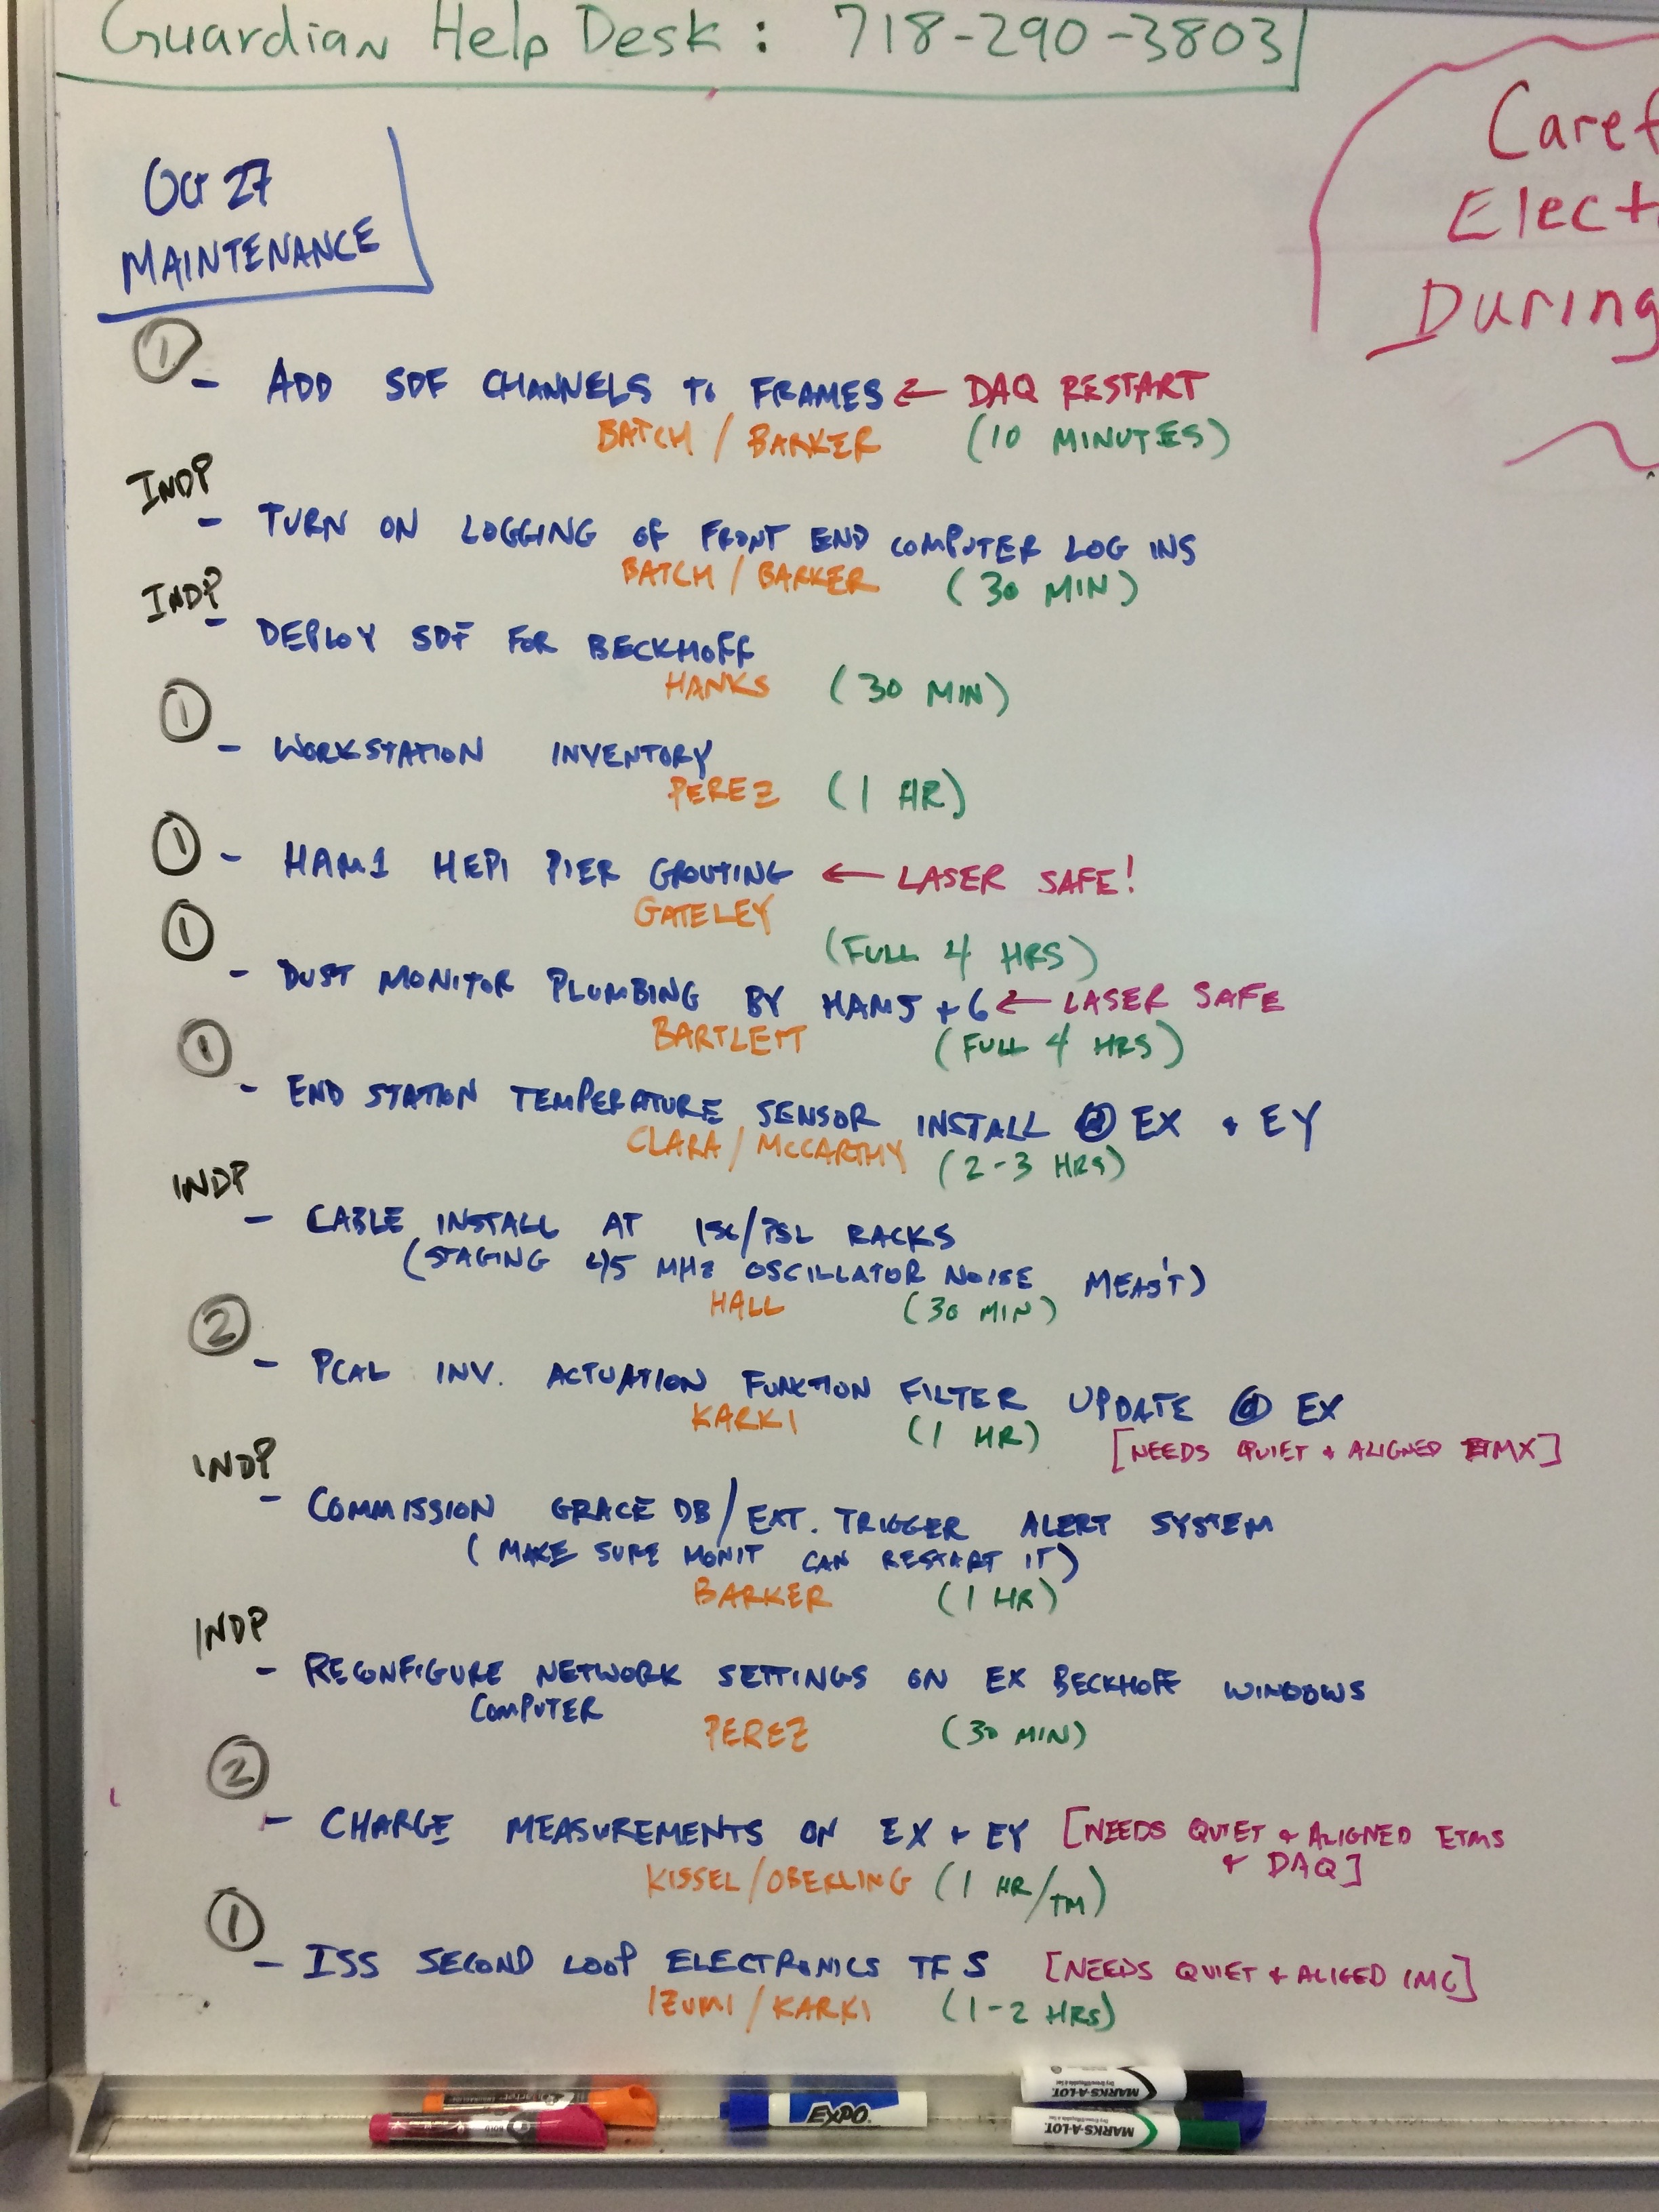 Guardian Help Desk: 718-290-3803
Caref
Elect
During
Oct 27
MAINTENANCE
1
- ADD SDF CHANNELS TO FRAMES ← DAQ RESTART
BATCH / BARKER (10 MINUTES)
INDP
- TURN ON LOGGING OF FRONT END COMPUTER LOG INS
BATCH / BARKER (30 MIN)
INDP
- DEPLOY SDF FOR BECKHOFF
HANKS (30 MIN)
1
- WORKSTATION INVENTORY
PEREZ (1 HR)
1
- HAM1 HEPI PIER GROUTING ← LASER SAFE!
GATELEY
(FULL 4 HRS)
1
- DUST MONITOR PLUMBING BY HAM5 + 6 ← LASER SAFE
BARTLETT (FULL 4 HRS)
1
- END STATION TEMPERATURE SENSOR INSTALL @ EX + EY
CLARA / MCCARTHY (2-3 HRS)
INDP
- CABLE INSTALL AT ISC/PSL RACKS
(STAGING 45 MHz OSCILLATOR NOISE MEAS'T)
HALL (30 MIN)
2
- PCAL INV. ACTUATION FUNCTION FILTER UPDATE @ EX
KARKI (1 HR) [NEEDS QUIET + ALIGNED ETMX]
INDP
- COMMISSION GRACE DB/EXT. TRIGGER ALERT SYSTEM
(MAKE SURE MONIT CAN RESTART IT)
BARKER (1 HR)
INDP
- RECONFIGURE NETWORK SETTINGS ON EX BECKHOFF WINDOWS
COMPUTER
PEREZ (30 MIN)
2
- CHARGE MEASUREMENTS ON EX + EY [NEEDS QUIET + ALIGNED ETMS
+ DAQ]
KISSEL/OBERLING (1 HR/TM)
1
- ISS SECOND LOOP ELECTRONICS TFS [NEEDS QUIET + ALIGED IMC]
IZUMI / KARKI (1-2 HRS)
EXPO
MARKS-A-LOT
MARKS-A-LOT